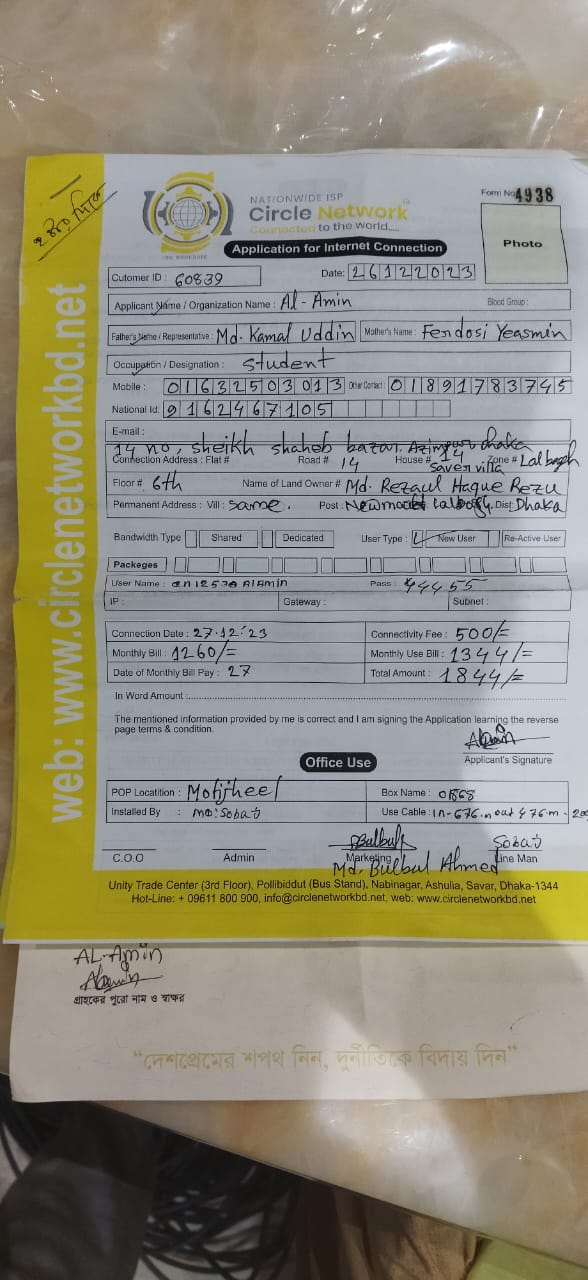 NATIONWIDE ISP
Circle Network
Connected to the world.....
Form No 4938
Application for Internet Connection
Photo
Cutomer ID : 60839
Date: 26122023
Applicant Name / Organization Name : Al-Amin
Blood Group :
Father's Name / Representative : Md. Kamal Uddin Mother's Name : Ferdosi Yeasmin
Occupation / Designation : Student
Mobile : 01632503013 Other Contact : 01891783745
National Id: 9162467105
E-mail :
14 no, sheikh shaheb bazar. Azimpur dhaka
Connection Address : Flat # Road # 14 House # 14 Zone # Lalbagh
Saver villa
Floor # 6th Name of Land Owner # Md. Rezaul Haque Rezu
Permanent Address : Vill : Same. Post : Newmarket Lalbagh. Dist: Dhaka
Bandwidth Type Shared Dedicated User Type : New User Re-Active User
Packeges
User Name : cn12530 AlAmin Pass : 44455
IP : Gateway : Subnet :
Connection Date : 27.12.'23 Connectivity Fee : 500/=
Monthly Bill : 1260/= Monthly Use Bill : 1344/=
Date of Monthly Bill Pay : 27 Total Amount : 1844/=
In Word Amount :
The mentioned information provided by me is correct and I am signing the Application learning the reverse
page terms & condition.
Applicant's Signature
Office Use
POP Locatition : Motijheel Box Name : 01868
Installed By : MD: Sobat Use Cable : in-676.m out 476.m -
Bulbul Sobat
C.O.O Admin Marketing Line Man
Md. Bulbul Ahmed
Unity Trade Center (3rd Floor), Pollibiddut (Bus Stand), Nabinagar, Ashulia, Savar, Dhaka-1344
Hot-Line: + 09611 800 900, info@circlenetworkbd.net, web: www.circlenetworkbd.net
web: www.circlenetworkbd.net
AL-Amin
গ্রাহকের পুরো নাম ও স্বাক্ষর
“দেশপ্রেমের শপথ নিন, দুর্নীতিকে বিদায় দিন”